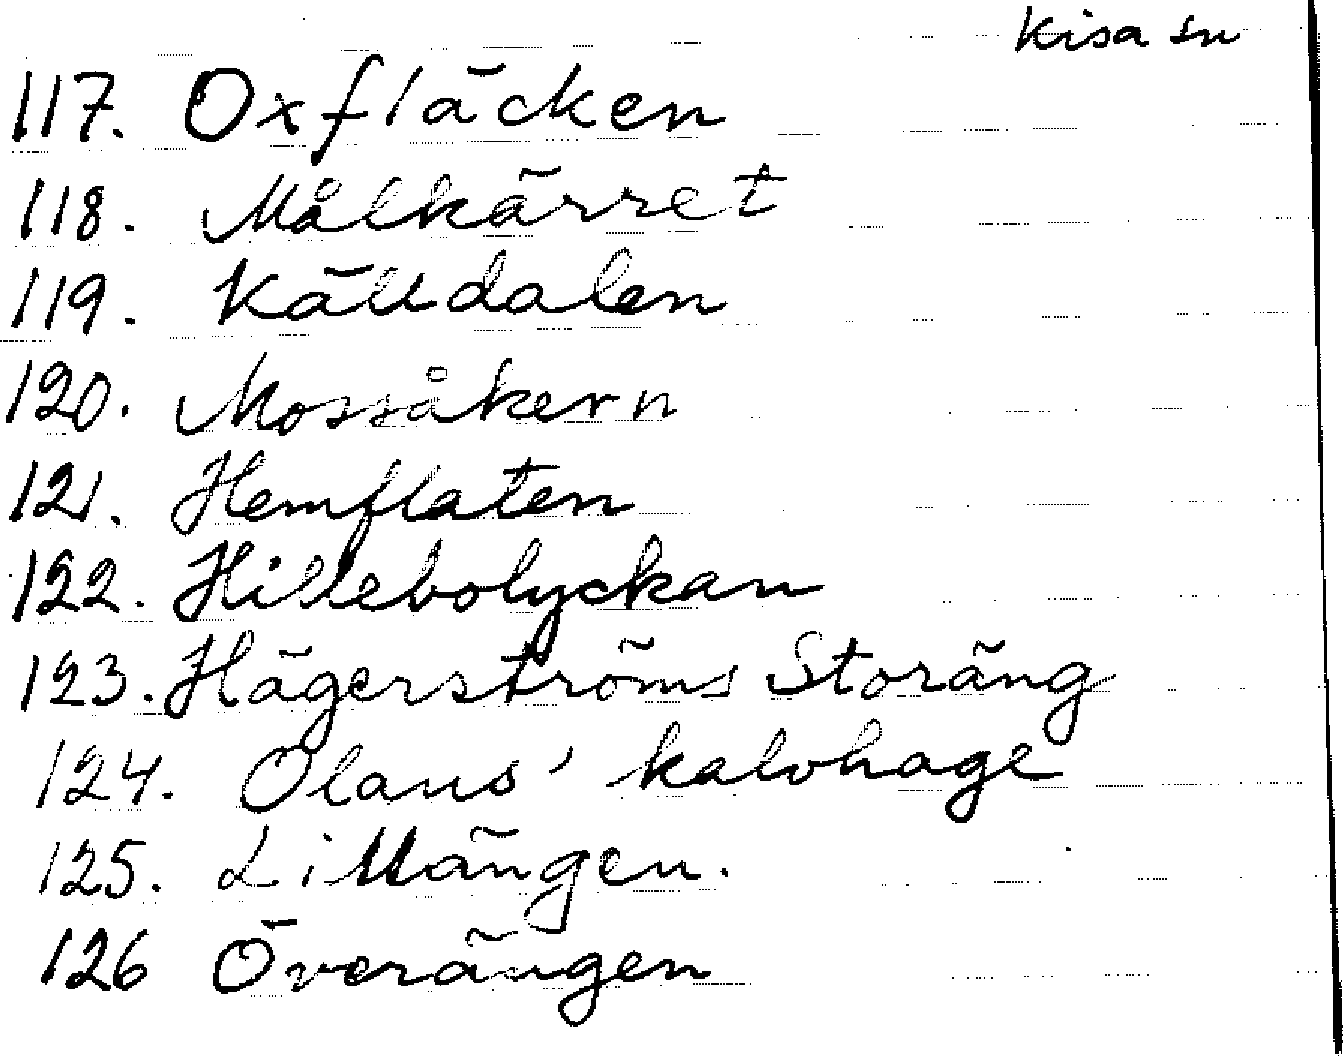 Kisa sn
117. Oxfläcken
118. Målkärret
119. Källdalen
120. Mossåkern
121. Hemflaten
122. Hillebolyckan
123. Hägerströms Storäng
124. Olaus' kalvhage
125. Lillängen.
126 Överängen